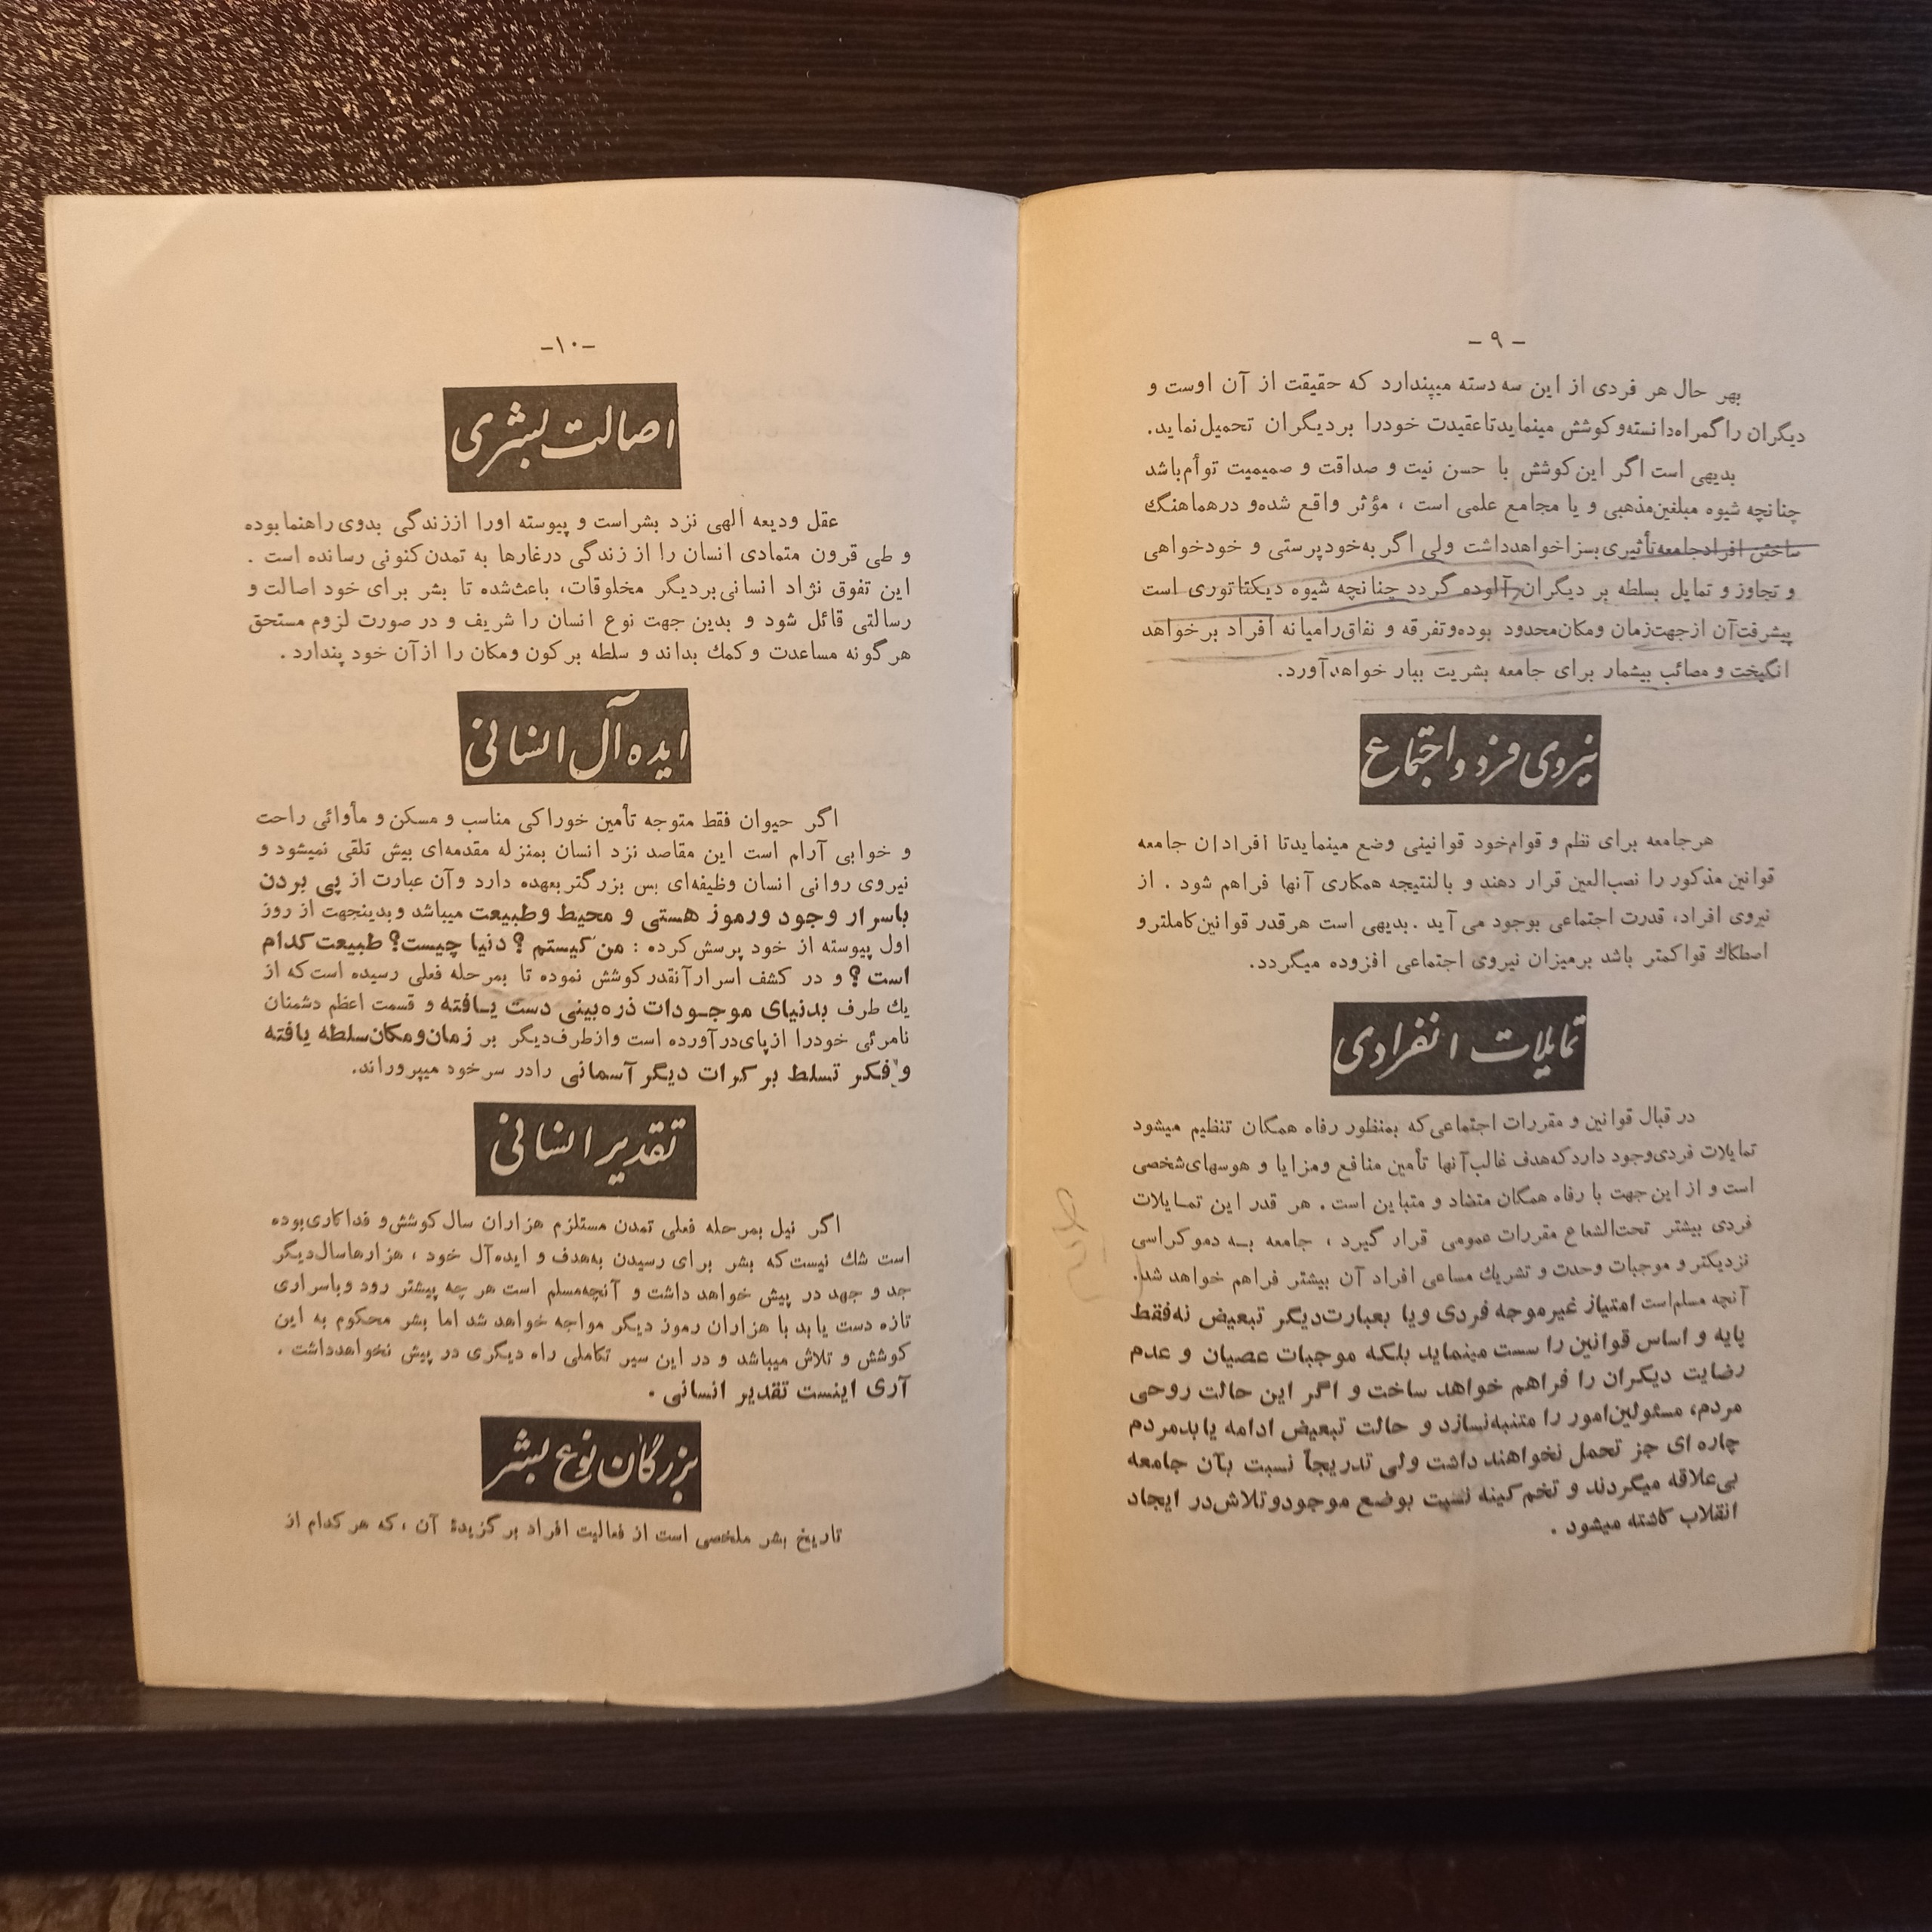 - ۹ -
بهر حال هر فردی از این سه دسته میپندارد که حقیقت از آن اوست و
دیگران را گمراه دانسته و کوشش مینماید تا عقیدت خود را بر دیگران تحمیل نماید.
بدیهی است اگر این کوشش با حسن نیت و صداقت و صمیمیت توأم باشد
چنانچه شیوه مبلغین مذهبی و یا مجامع علمی است ، مؤثر واقع شده و در هماهنگ
ساختن افراد جامعه تأثیری بسزا خواهد داشت ولی اگر به خود پرستی و خودخواهی
و تجاوز و تمایل بسلطه بر دیگران آلوده گردد چنانچه شیوه دیکتاتوری است
پیشرفت آن از جهت زمان و مکان محدود بوده و تفرقه و نفاق را میانه افراد بر خواهد
انگیخت و مصائب بیشمار برای جامعه بشریت ببار خواهد آورد.
نیروی فرد و اجتماع
هر جامعه برای نظم و قوام خود قوانینی وضع مینماید تا افراد آن جامعه
قوانین مذکور را نصب‌العین قرار دهند و بالنتیجه همکاری آنها فراهم شود . از
نیروی افراد، قدرت اجتماعی بوجود می آید . بدیهی است هر قدر قوانین کاملتر و
اصطکاك قوا کمتر باشد بر میزان نیروی اجتماعی افزوده میگردد.
تمایلات انفرادی
در قبال قوانین و مقررات اجتماعی که بمنظور رفاه همگان تنظیم میشود
تمایلات فردی وجود دارد که هدف غالب آنها تأمین منافع و مزایا و هوسهای شخصی
است و از این جهت با رفاه همگان متضاد و متباین است . هر قدر این تمایلات
فردی بیشتر تحت‌الشعاع مقررات عمومی قرار گیرد ، جامعه به دموکراسی
نزدیکتر و موجبات وحدت و تشریك مساعی افراد آن بیشتر فراهم خواهد شد.
آنچه مسلم است امتیاز غیر موجه فردی و یا بعبارت دیگر تبعیض نه فقط
پایه و اساس قوانین را سست مینماید بلکه موجبات عصیان و عدم
رضایت دیگران را فراهم خواهد ساخت و اگر این حالت روحی
مردم، مسئولین امور را متنبه نسازد و حالت تبعیض ادامه یابد مردم
چاره ای جز تحمل نخواهند داشت ولی تدریجاً نسبت بآن جامعه
بی‌علاقه میگردند و تخم کینه نسبت بوضع موجود و تلاش در ایجاد
انقلاب کاشته میشود .
-۱۰-
اصالت بشری
عقل ودیعه الهی نزد بشر است و پیوسته او را از زندگی بدوی راهنما بوده
و طی قرون متمادی انسان را از زندگی در غارها به تمدن کنونی رسانده است .
این تفوق نژاد انسانی بر دیگر مخلوقات، باعث شده تا بشر برای خود اصالت و
رسالتی قائل شود و بدین جهت نوع انسان را شریف و در صورت لزوم مستحق
هر گونه مساعدت و کمك بداند و سلطه بر کون و مکان را از آن خود پندارد .
ایده آل انسانی
اگر حیوان فقط متوجه تأمین خوراکی مناسب و مسکن و مأوائی راحت
و خوابی آرام است این مقاصد نزد انسان بمنزله مقدمه‌ای بیش تلقی نمیشود و
نیروی روانی انسان وظیفه‌ای بس بزرگتر بعهده دارد و آن عبارت از پی بردن
باسرار وجود و رموز هستی و محیط و طبیعت میباشد و بدینجهت از روز
اول پیوسته از خود پرسش کرده : من کیستم ؟ دنیا چیست؟ طبیعت کدام
است ؟ و در کشف اسرار آنقدر کوشش نموده تا بمرحله فعلی رسیده است که از
یك طرف بدنیای موجودات ذره‌بینی دست یافته و قسمت اعظم دشمنان
نامرئی خود را از پای درآورده است و از طرف دیگر بر زمان و مکان سلطه یافته
و فکر تسلط بر کرات دیگر آسمانی را در سر خود میپروراند.
تقدیر انسانی
اگر نیل بمرحله فعلی تمدن مستلزم هزاران سال کوشش و فداکاری بوده
است شك نیست که بشر برای رسیدن به هدف و ایده‌آل خود ، هزارها سال دیگر
جد و جهد در پیش خواهد داشت و آنچه مسلم است هر چه پیشتر رود و باسراری
تازه دست یابد با هزاران رموز دیگر مواجه خواهد شد اما بشر محکوم به این
کوشش و تلاش میباشد و در این سیر تکاملی راه دیگری در پیش نخواهد داشت .
آری اینست تقدیر انسانی .
بزرگان نوع بشر
تاریخ بشر ملخصی است از فعالیت افراد بر گزیدهٔ آن ، که هر کدام از